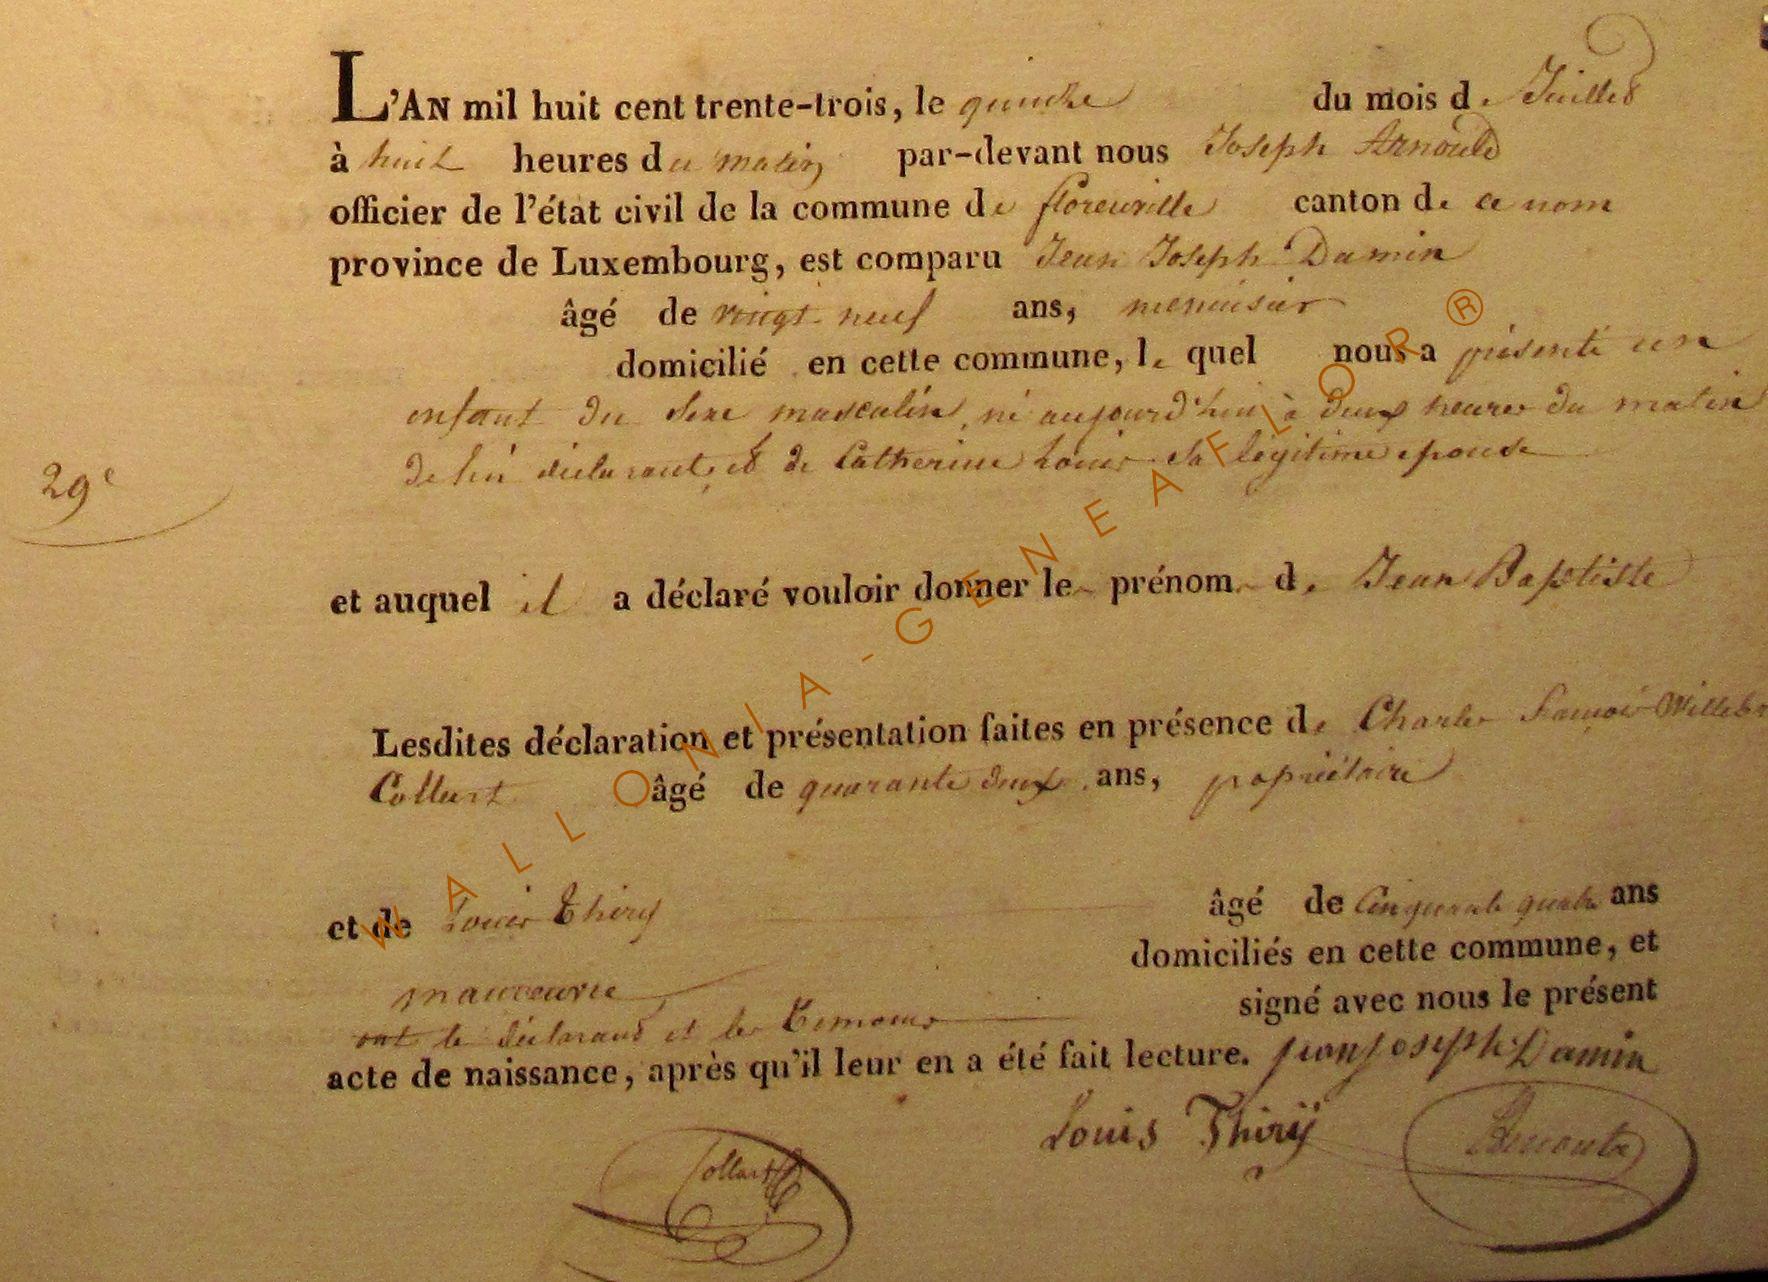 L'AN mil huit cent trente-trois, le quinze du mois de Juillet
à huit heures du matin par-devant nous Joseph Arnould
officier de l'état civil de la commune de florenville canton de ce nom
province de Luxembourg, est comparu Jean Joseph Damin
âgé de vingt neuf ans, menuisier
domicilié en cette commune, le quel nous a présenté un
enfant du sexe masculin, né aujourd'hui à deux heures du matin
de lui déclarant, et de Catherine Louis sa légitime epouse
29e
et auquel il a déclaré vouloir donner le prénom de Jean Baptiste
Lesdites déclaration et présentation faites en présence de Charles François
Collart âgé de quarante deux ans, propriétaire
et de Louis Thiry âgé de Cinquante quatre ans
domiciliés en cette commune, et
manoeuvre signé avec nous le présent
ont le déclarant et les temoins
acte de naissance, après qu'il leur en a été fait lecture. jean joseph Damin
Louis Thirÿ
Collart
WALLONIA-GENEAFLOR ®